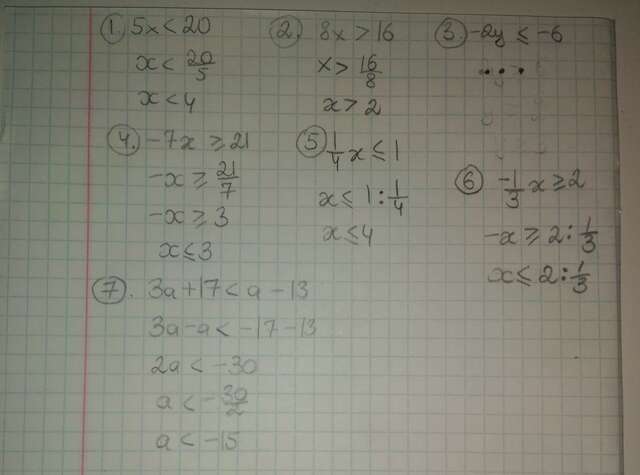 1. 5x < 20
x < 20/5
x < 4
2. 8x > 16
x > 16/8
x > 2
3. -2y ≤ -6
...
4. -7x ≥ 21
-x ≥ 21/7
-x ≥ 3
x ≤ 3
5 1/4 x ≤ 1
x ≤ 1 : 1/4
x ≤ 4
6 -1/3 x ≥ 2
-x ≥ 2 : 1/3
x ≤ 2 : 1/3
7. 3a + 17 < a - 13
3a - a < -17 - 13
2a < -30
a < -30/2
a < -15